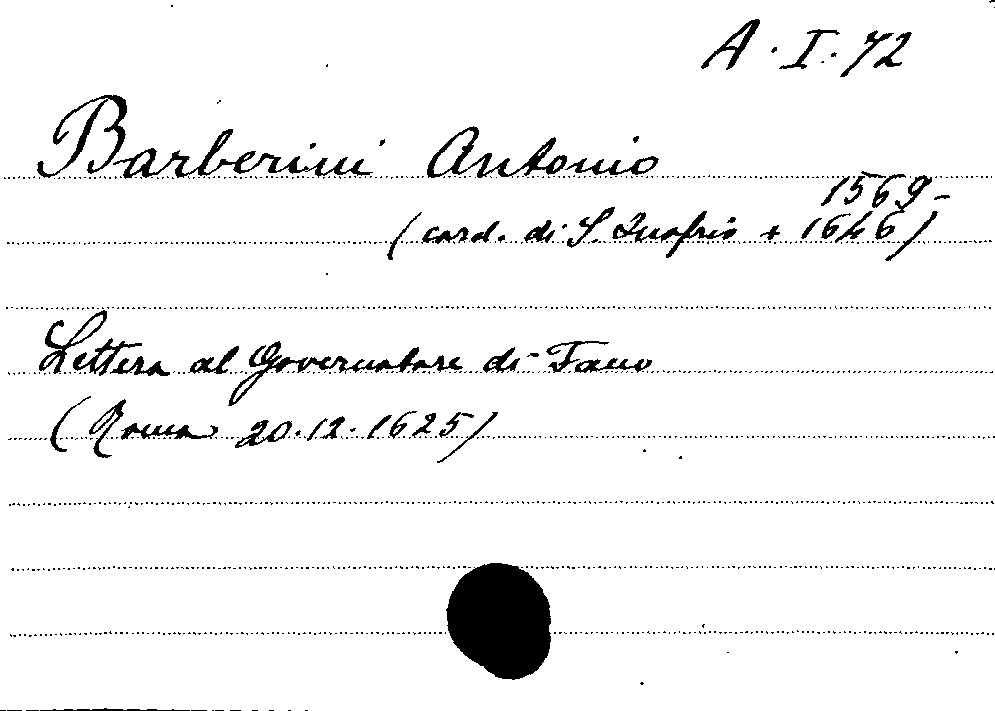 A. I. 72
Barberini Antonio
1569-
(card. di S. Onofrio + 1646)
Lettera al Governatore di Fano
(Roma 20.12.1625)